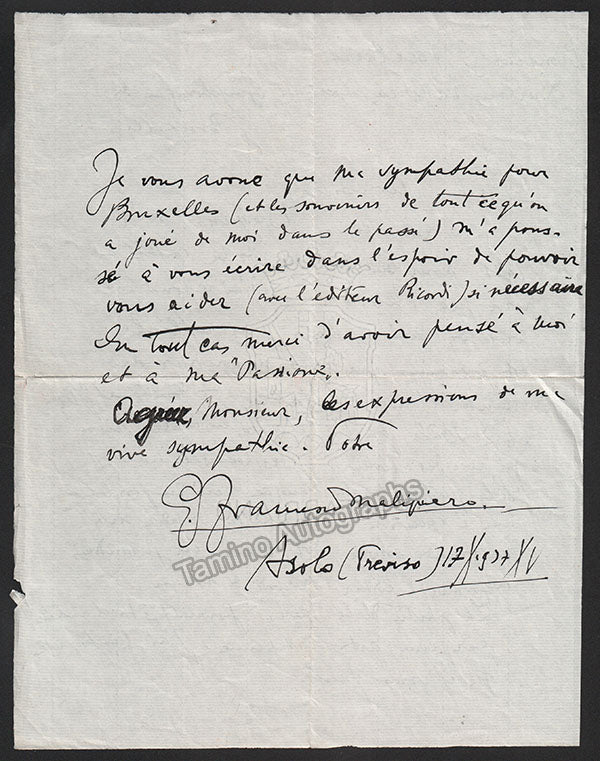 Je vous avoue que ma sympathie pour
Bruxelles (et les souvenirs de tout ce qu'on
a joué de moi dans le passé) m'a pous-
sé à vous écrire dans l'espoir de pouvoir
vous aider (avec l'éditeur Ricordi) si nécessaire
En tout cas merci d'avoir pensé à moi
et à ma "Passione".
Agréez, Monsieur, les expressions de ma
vive sympathie. Votre
G. Francesco Malipiero.
Tamino Autographs
Asolo (Treviso) 17